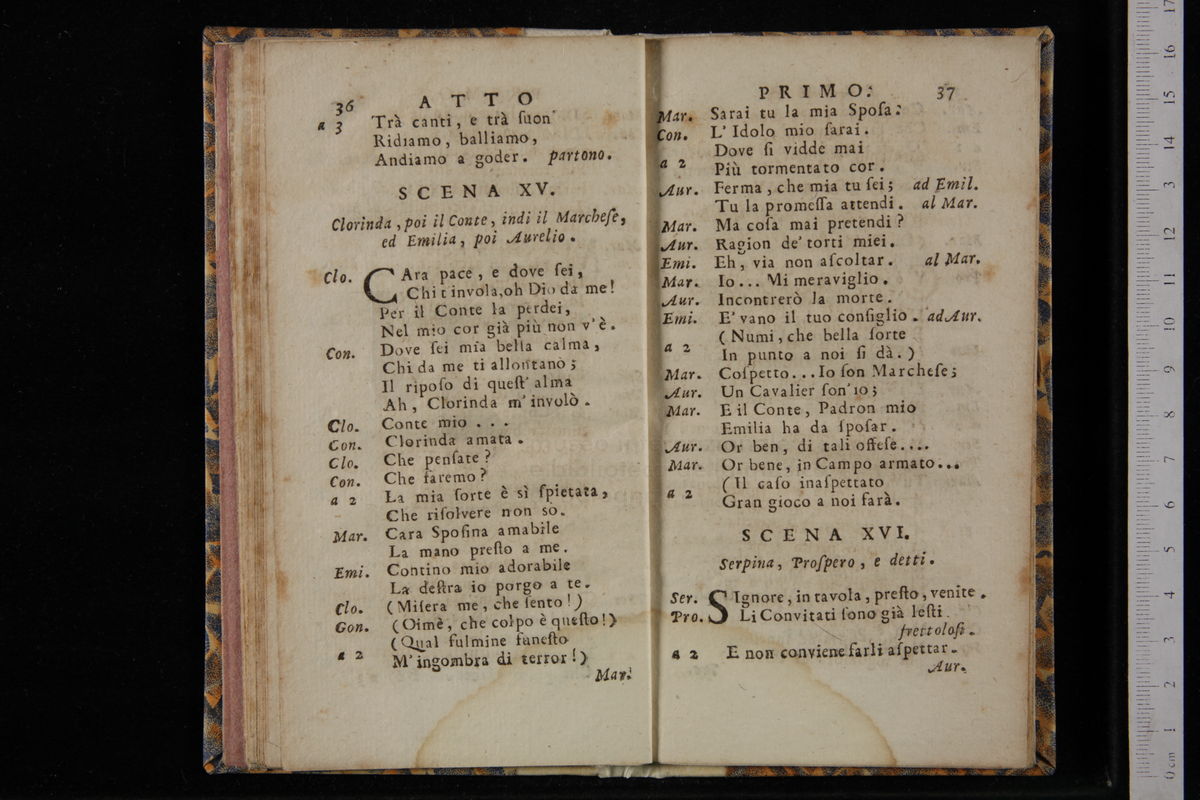 36 ATTO
a 3 Trà canti, e trà ſuon
Ridiamo, balliamo,
Andiamo a goder. partono.
SCENA XV.
Clorinda, poi il Conte, indi il Marcheſe,
ed Emilia, poi Aurelio.
Clo. CAra pace, e dove ſei,
Chi t invola, oh Dio da me!
Per il Conte la perdei,
Nel mio cor già più non v'è.
Con. Dove ſei mia bella calma,
Chi da me ti allontanò;
Il ripoſo di queſt' alma
Ah, Clorinda m'involò.
Clo. Conte mio ...
Con. Clorinda amata.
Clo. Che penſate?
Con. Che faremo?
a 2 La mia ſorte è sì ſpietata,
Che riſolvere non so.
Mar. Cara Spoſina amabile
La mano preſto a me.
Emi. Contino mio adorabile
La deſtra io porgo a te.
Clo. (Miſera me, che ſento!)
Con. (Oimè, che colpo è queſto!)
(Qual fulmine funeſto
a 2 M'ingombra di terror!)
Mar.
PRIMO. 37
Mar. Sarai tu la mia Spoſa.
Con. L'Idolo mio ſarai.
Dove ſi vidde mai
a 2 Più tormentato cor.
Aur. Ferma, che mia tu ſei; ad Emil.
Tu la promeſſa attendi. al Mar.
Mar. Ma coſa mai pretendi?
Aur. Ragion de' torti miei.
Emi. Eh, via non aſcoltar. al Mar.
Mar. Io... Mi meraviglio.
Aur. Incontrerò la morte.
Emi. E' vano il tuo conſiglio. ad Aur.
(Numi, che bella ſorte
a 2 In punto a noi ſi dà.)
Mar. Coſpetto... Io ſon Marcheſe;
Aur. Un Cavalier ſon'io;
Mar. E il Conte, Padron mio
Emilia ha da ſpoſar.
Aur. Or ben, di tali offeſe....
Mar. Or bene, in Campo armato...
(Il caſo inaſpettato
a 2 Gran gioco a noi farà.
SCENA XVI.
Serpina, Proſpero, e detti.
Ser. SIgnore, in tavola, preſto, venite.
Pro. Li Convitati ſono già leſti.
frettoloſi.
a 2 E non conviene farli aſpettar.
Aur.